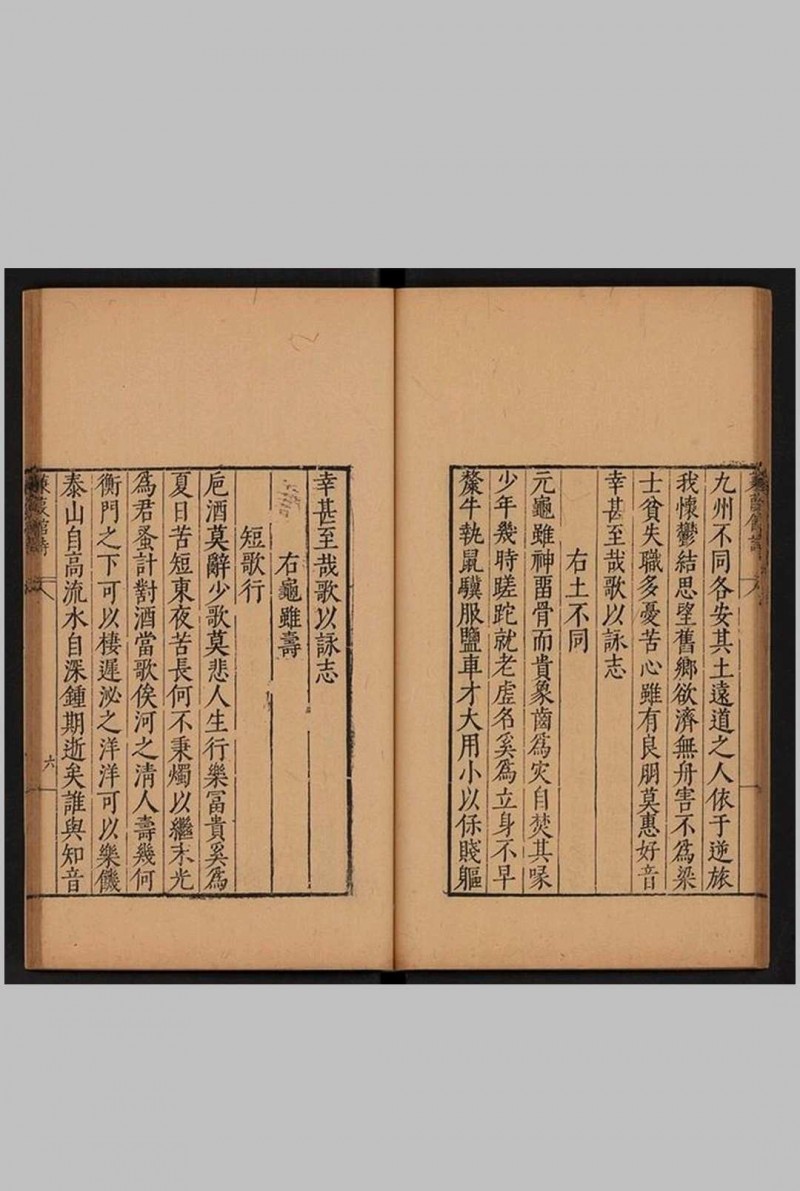 九州不同各安其土遠道之人依于逆旅
我懷鬱結思望舊鄉欲濟無舟害不爲梁
士貧失職多憂苦心雖有良朋莫惠好音
幸甚至哉歌以詠志
右土不同
元龜雖神畱骨而貴象齒爲灾自焚其喙
少年幾時蹉跎就老虛名奚爲立身不早
斄牛執鼠驥服鹽車才大用小以保賤軀
幸甚至哉歌以詠志
右龜雖壽
短歌行
巵酒莫辭少歌莫悲人生行樂冨貴奚爲
夏日苦短東夜苦長何不秉燭以繼末光
爲君蚤計對酒當歌俟河之清人壽幾何
衡門之下可以棲遲泌之洋洋可以樂饑
泰山自高流水自深鍾期逝矣誰與知音
蒹葭館詩
六